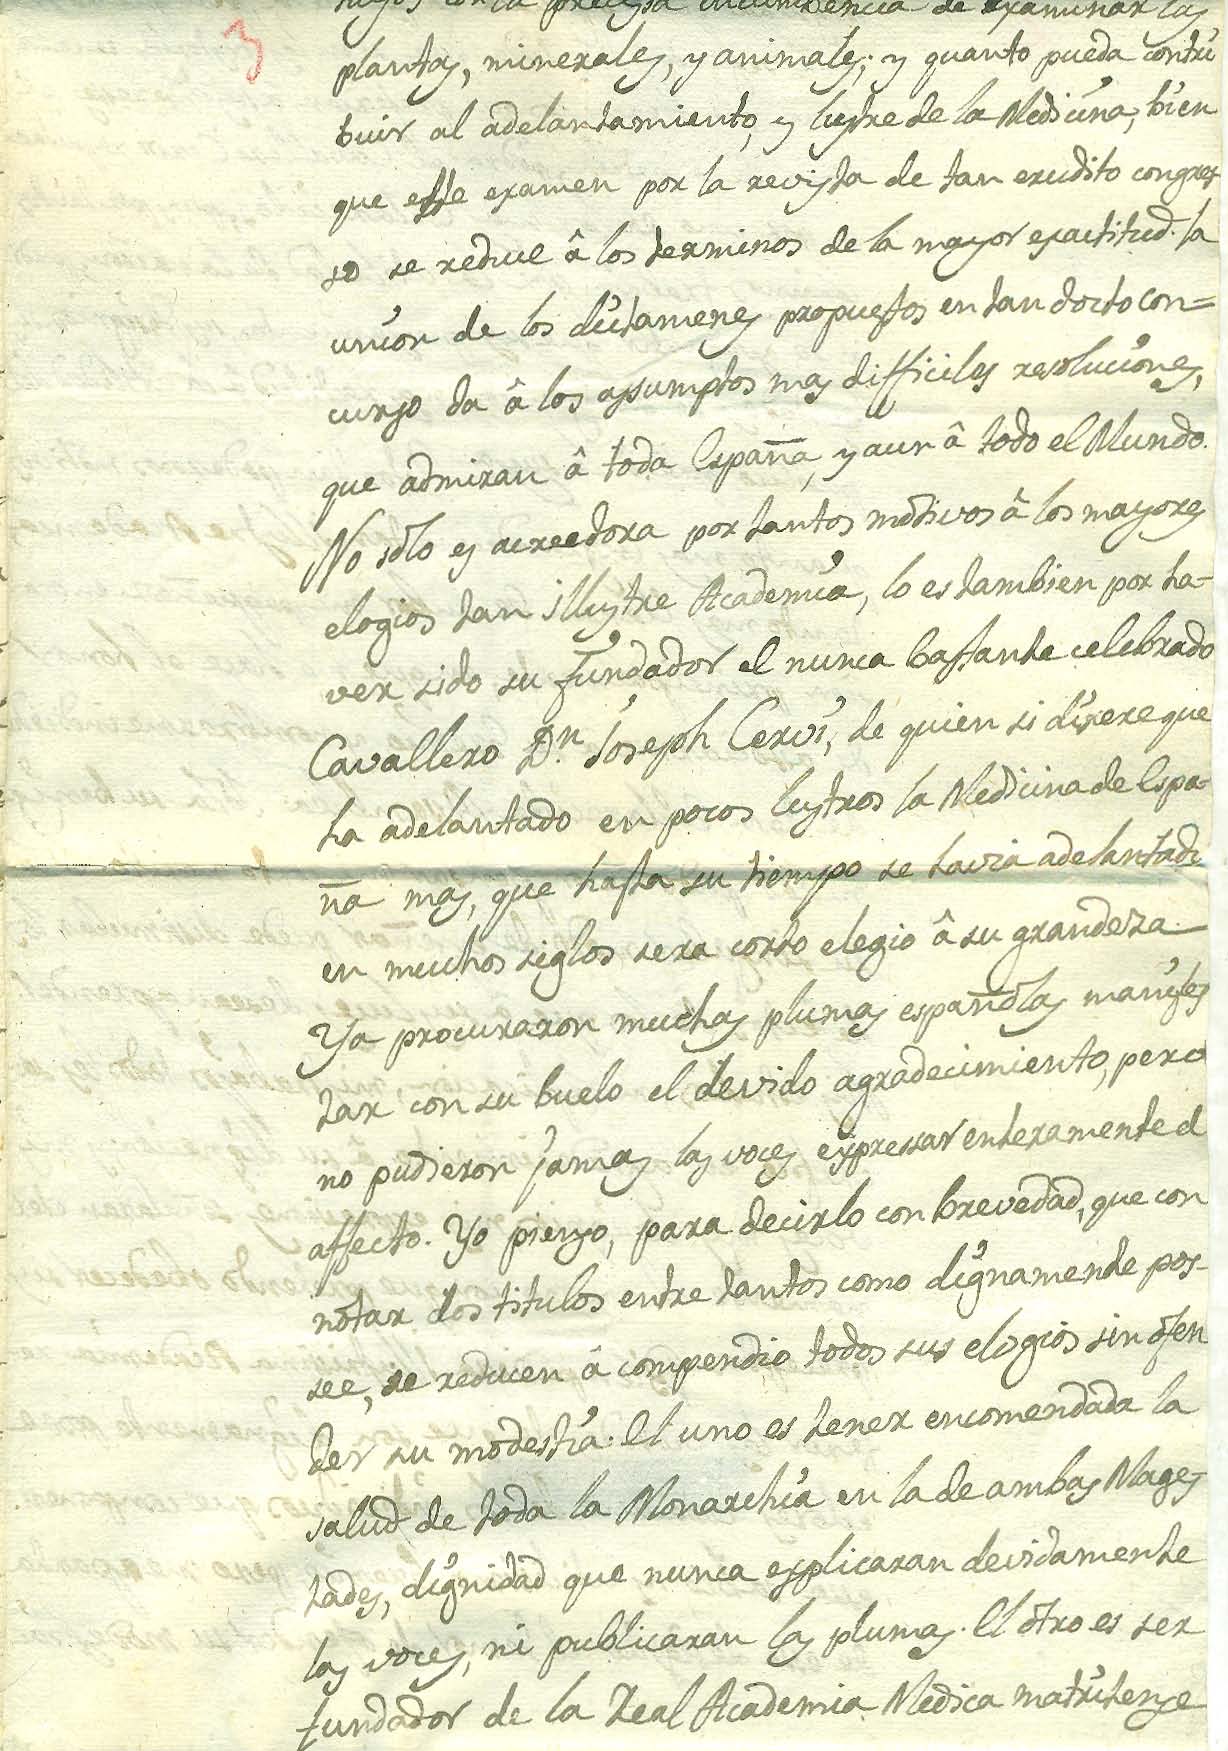 3
suyos con la precisa incumbencia de examinar las
plantas, minerales, y animales; y quanto pueda contri
buir al adelantamiento, y lustre de la Medicina, bien
que esse examen por la revista de tan erudito congres
so se reduce â los terminos de la mayor exactitud. la
union de los dictamenes propuestos en tan docto con=
curso da â los assumptos mas difficiles resoluciones,
que admiran â toda España, y aun â todo el Mundo.
No solo es acreedora por tantos motivos â los mayores
elogios tan illustre Academia, lo es tambien por ha-
ver sido su fundador el nunca bastante celebrado
Cavallero Dn. Joseph Cervi, de quien si dixere que
ha adelantado en pocos lustros la Medicina de Espa-
ña mas, que hasta su tiempo se havia adelantado
en muchos siglos sera corto elegio â su grandeza.
Ya procuraron muchas plumas españolas manifes
tar con su buelo el devido agradecimiento, pero
no pudieron jamas las voces expressar enteramente el
affecto. Yo pienso, para decirlo con brevedad, que con
notar dos titulos entre tantos como dignamente pos-
see, se reducen â compendio todos sus elogios sin ofen
der su modestia. El uno es tener encomendada la
salud de toda la Monarchia en la de ambas Mages
tades, dignidad que nunca explicaran devidamente
las voces, ni publicaran las plumas. El otro es ser
fundador de la Real Academia Medica matritense